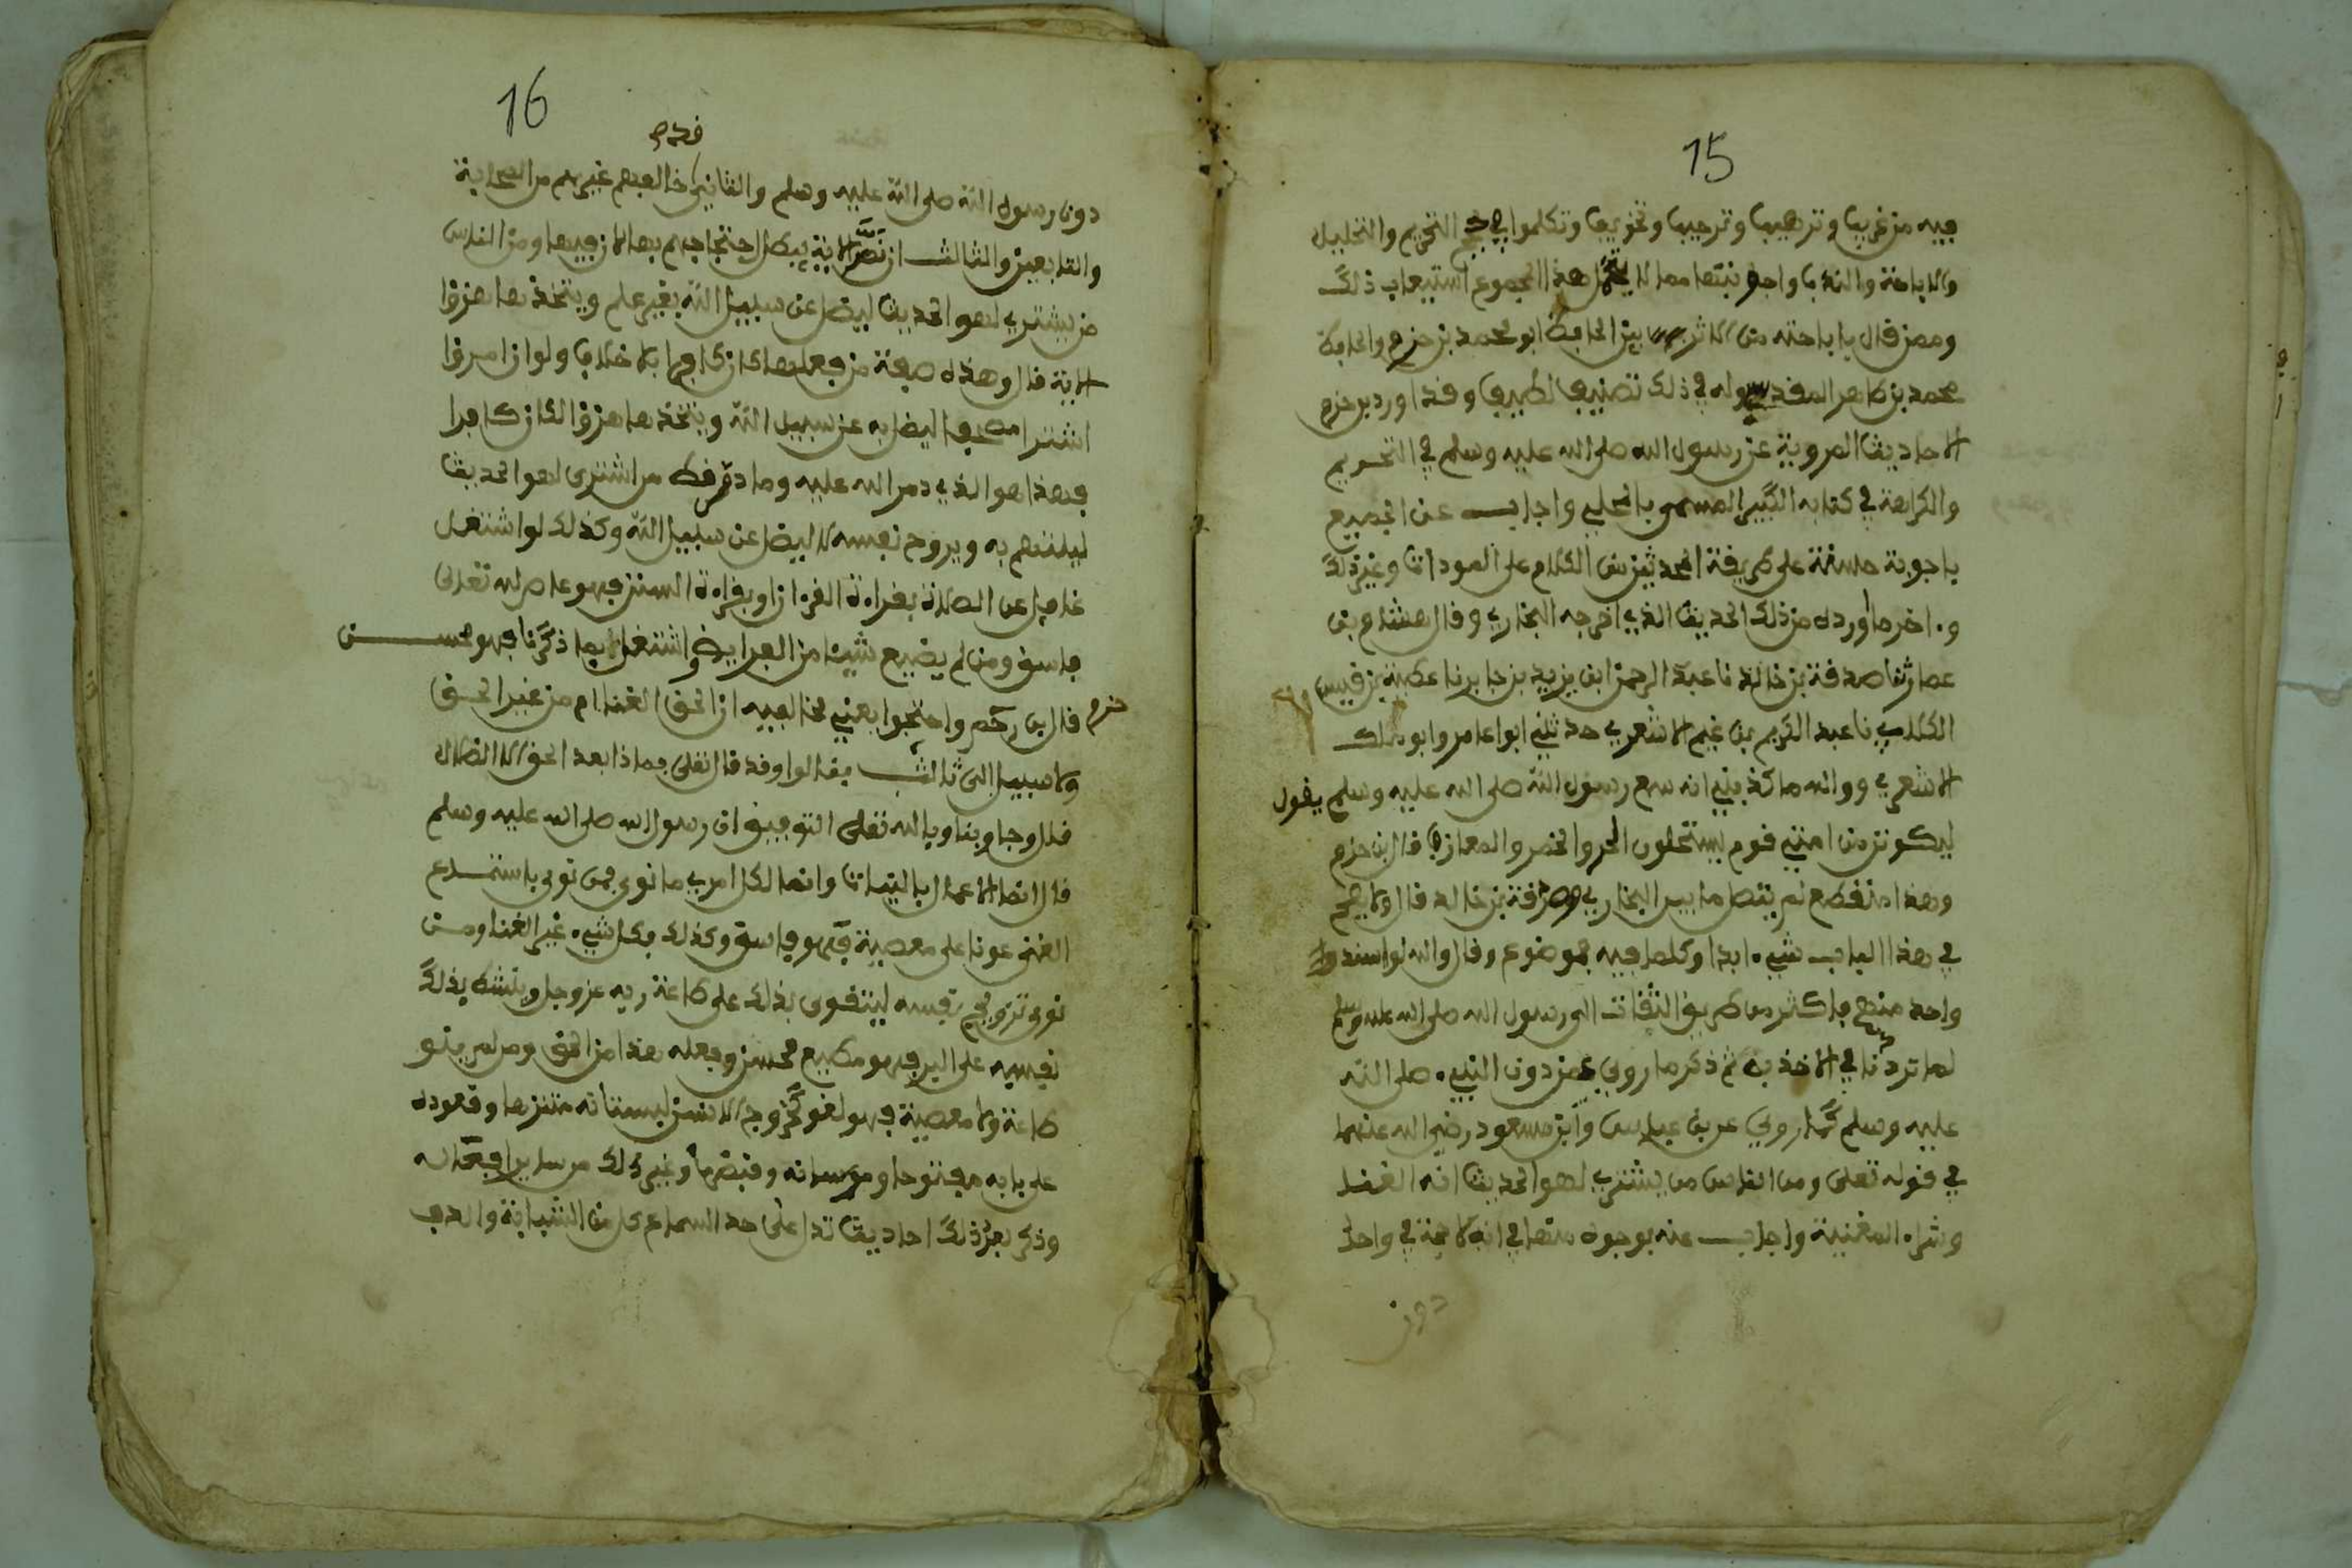 15
فيه من غريب وترهيب وترحيب وتخويف وتكلموا في حجج التحريم والتحليل
والاباحة والندب واجوبتها مما لا يحتمل هذا المجموع استيعاب ذلك
وممن قال باباحته من الاثريين الحافظ ابو محمد بن حزم والحافظ
محمد بن طاهر المقدسي وله في ذلك تصنيف لطيف وقد اورد بن حزم
الاحاديث المروية عن رسول الله صلى الله عليه وسلم في التحريم
والكراهة في كتابه الكبير المسمى بالمحلى واجاب عن الجميع
باجوبة حسنة على طريقة المحدثين من الكلام على وغير ذلك
واخر ما اورده من ذلك الحديث الذي اخرجه البخاري وقال هشام بن
عمار ثنا صدقة بن خالد نا عبد الرحمن ابن يزيد بن جابر نا عطية بن قيس
الكلابي نا عبد الكريم بن غنم الاشعري حدثني ابوا عامر وابو ملك
الاشعري ووالله ما كذبني انه سمع رسول الله صلى الله عليه وسلم يقول
ليكونن من امتي قوم يستحلون الحر والخمر والمعازف قال بن حزم
وهذا منقطع لم يتصل ما بين البخاري وصدقة بن خالد قال ولا يصح
في هذا الباب شيء ابدا وكلما فيه فموضوع وقال والله لو اسند ولو
واحد منها فاكثر من طريق الثقات الى رسول الله صلى الله عليه وسلم
لما ترددنا في الاخذ به ثم ذكر ما روي عمن دون النبيء صلى الله
عليه وسلم كما روي عن بن عباس وابن مسعود رضي الله عنهما
في قوله تعلى ومن الناس من يشتري لهو الحديث انه الغنا
وشراء المغنية واجاب عنه بوجوه منها في انه لا حجة في واحد
دون
16
قدم
دون رسول الله صلى الله عليه وسلم والثاني خالفهم غيرهم من الصحابة
والتابعين والثالث ان نص الاية يبطل احتجاجهم بها لان فيها ومن الناس
من يشتري لهو الحديث ليضل عن سبيل الله بغير علم ويتخذها هزؤا
الاية قال وهذه صفة من فعلها كان كافرا بلا خلاف ولو ان امرؤا
اشترا مصحفا ليضل به عن سبيل الله ويتخذها هزؤا لكان كافرا
فهذا هو الذي ذم الله عليه وما ذم قط من اشترى لهو الحديث
ليلتهي به ويروح نفسه لا ليضل عن سبيل الله وكذلك لو اشتغل
غافل عن الصلاة بقراءة القرءان او بقراءة السنن فهو عاص لله تعلى
فاسق ومن لم يضيع شيئا من الفرايض واشتغل بما ذكرنا فهو محسن
حزم
قال بن واحتجوا يعني مخالفيه ان الحق الغنا ام من غير الحق
ولا سبيل الى ثالث فقالوا وقد قال تعلى فماذا بعد الحق الا الضلال
قال وجاوبنا وبالله تعلى التوفيق ان رسول الله صلى الله عليه وسلم
قال انما الاعمال بالنيات وانما لكل امرئ ما نوى فمن نوى باستماع
الغنى عونا على معصية فهو فاسق وكذلك كل شيء غير الغنا ومن
نوى ترويح نفسه ليتقوى بذلك على طاعة ربه عز وجل وينشط بذلك
نفسه على البر فهو مطيع محسن وفعله هذا من الحق ومن لم ينو
طاعة ولا معصية فهو لغو كخروج الانسان لبستانه متنزها وقعوده
على بابه مفتوحا وغير ذلك من ساير افعاله
وذكر بعد ذلك احاديث تدل على حد السماع كل من الشبابة والدف